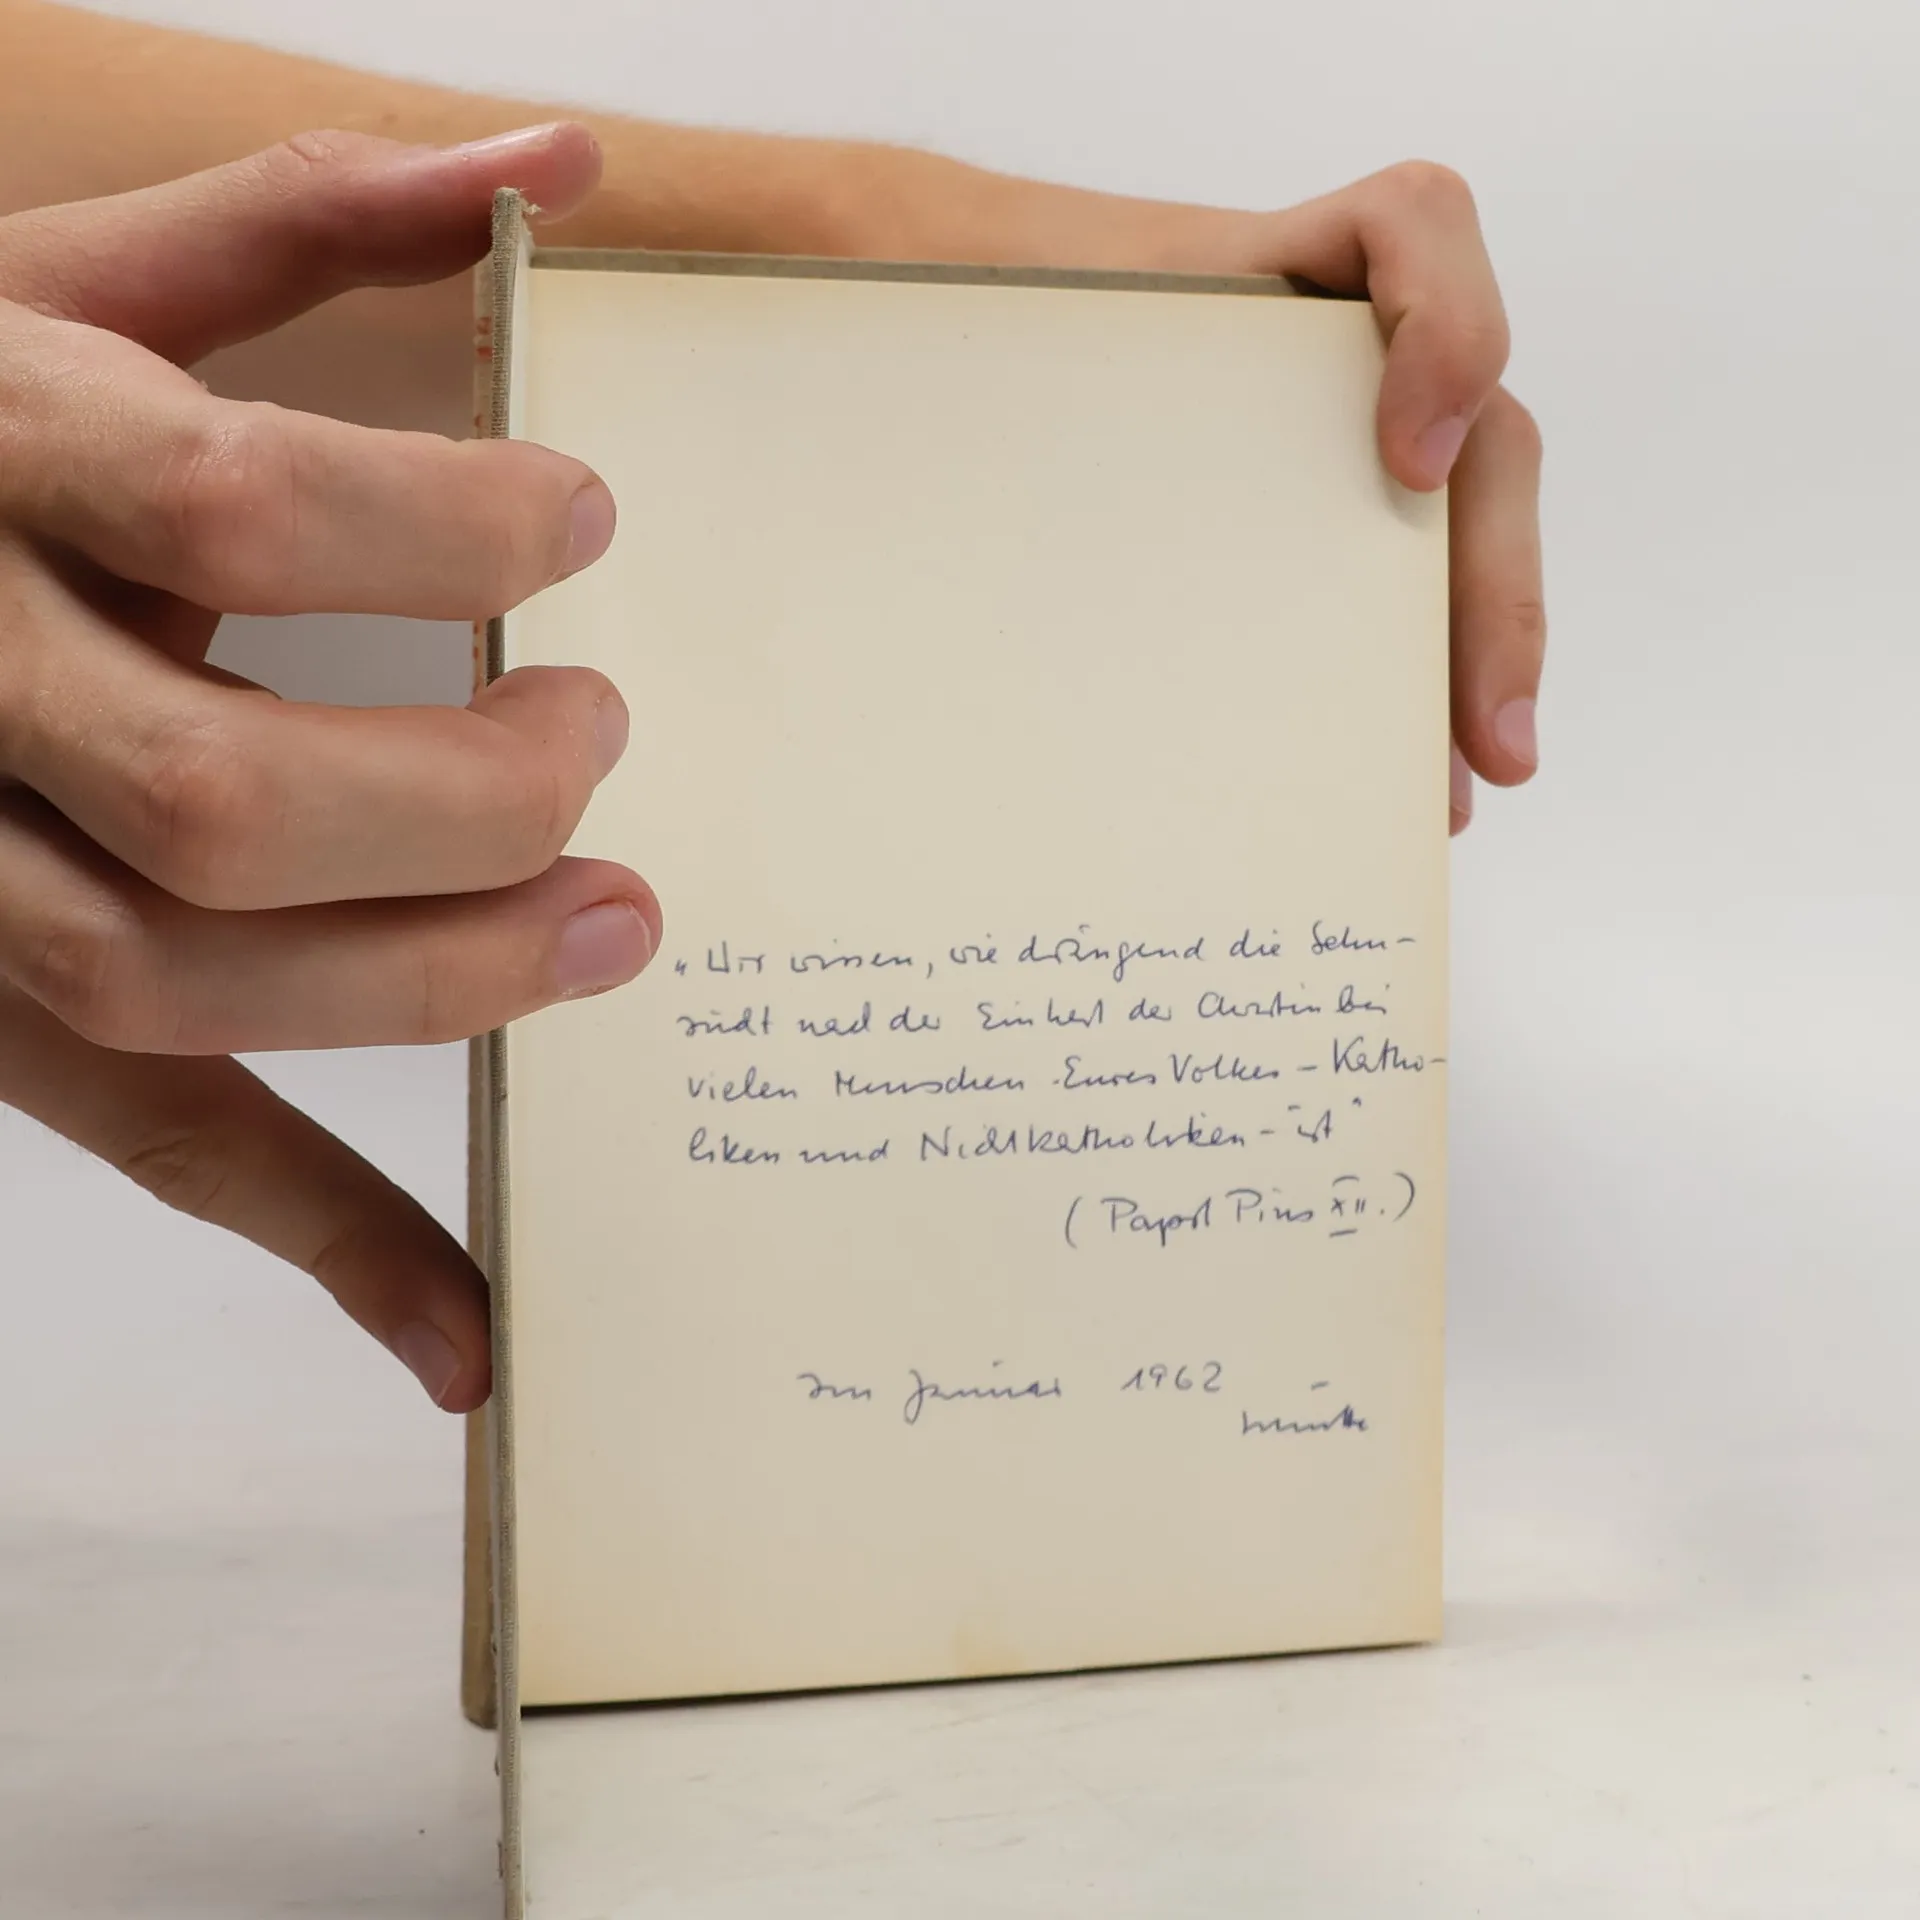 „Wir wissen, wie drängend die Sehn-
sucht nach der Einheit der Christen bei
vielen Menschen Eures Volkes – Katho-
liken und Nichtkatholiken – ist"
(Papst Pius XII.)
Im Januar 1962